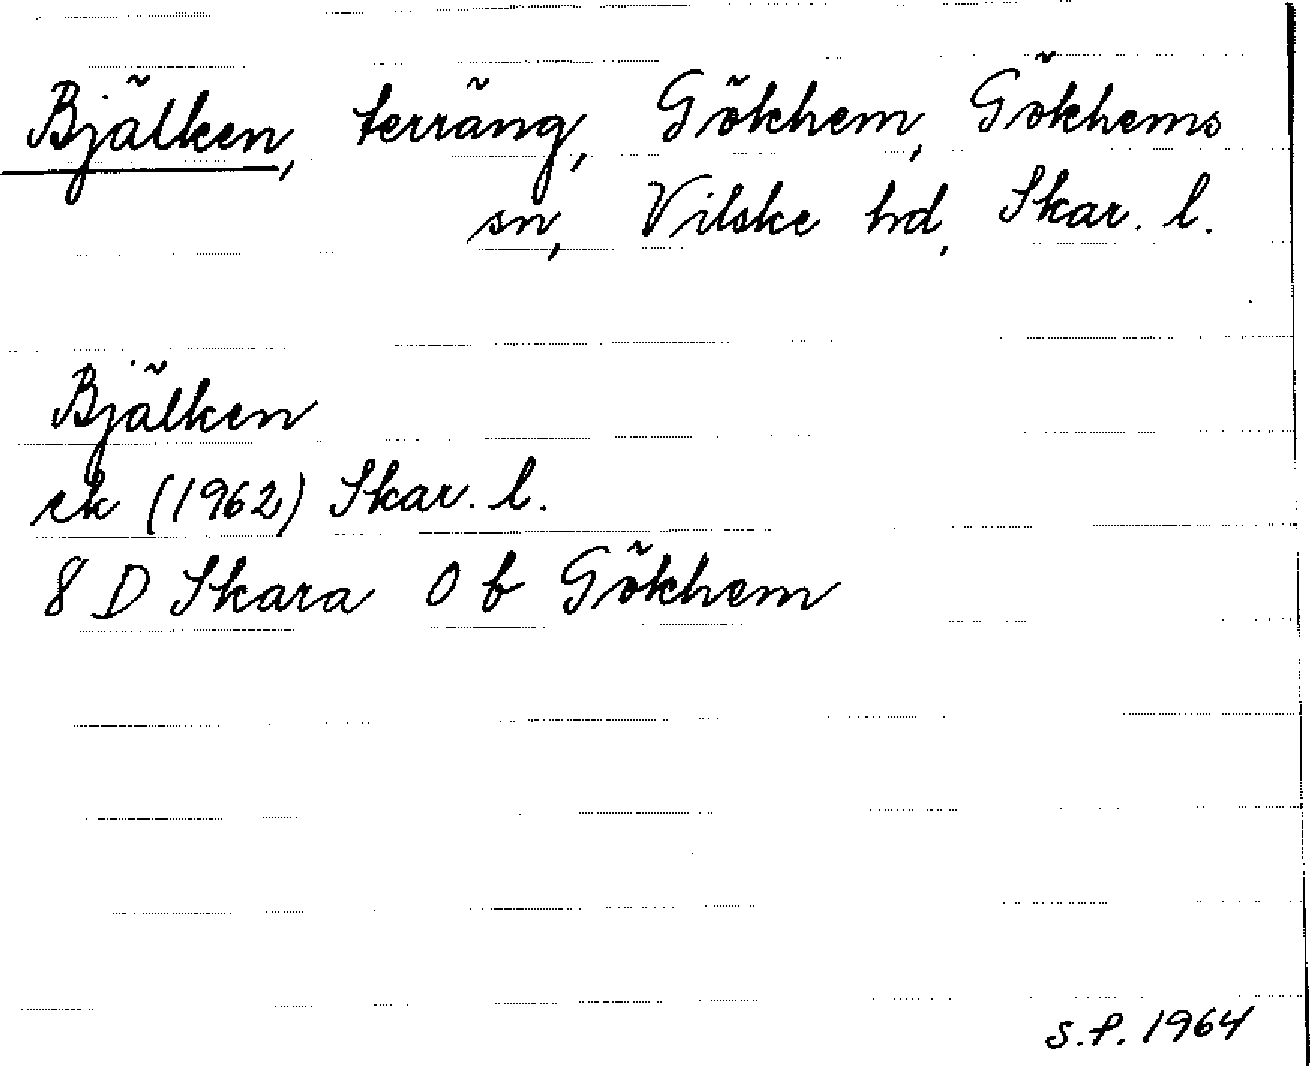 Bjälken, terräng, Gökhem, Gökhems
sn, Vilske hd, Skar. l.
Bjälken
ek (1962) Skar. l.
8 D Skara 0 b Gökhem
S.P. 1964